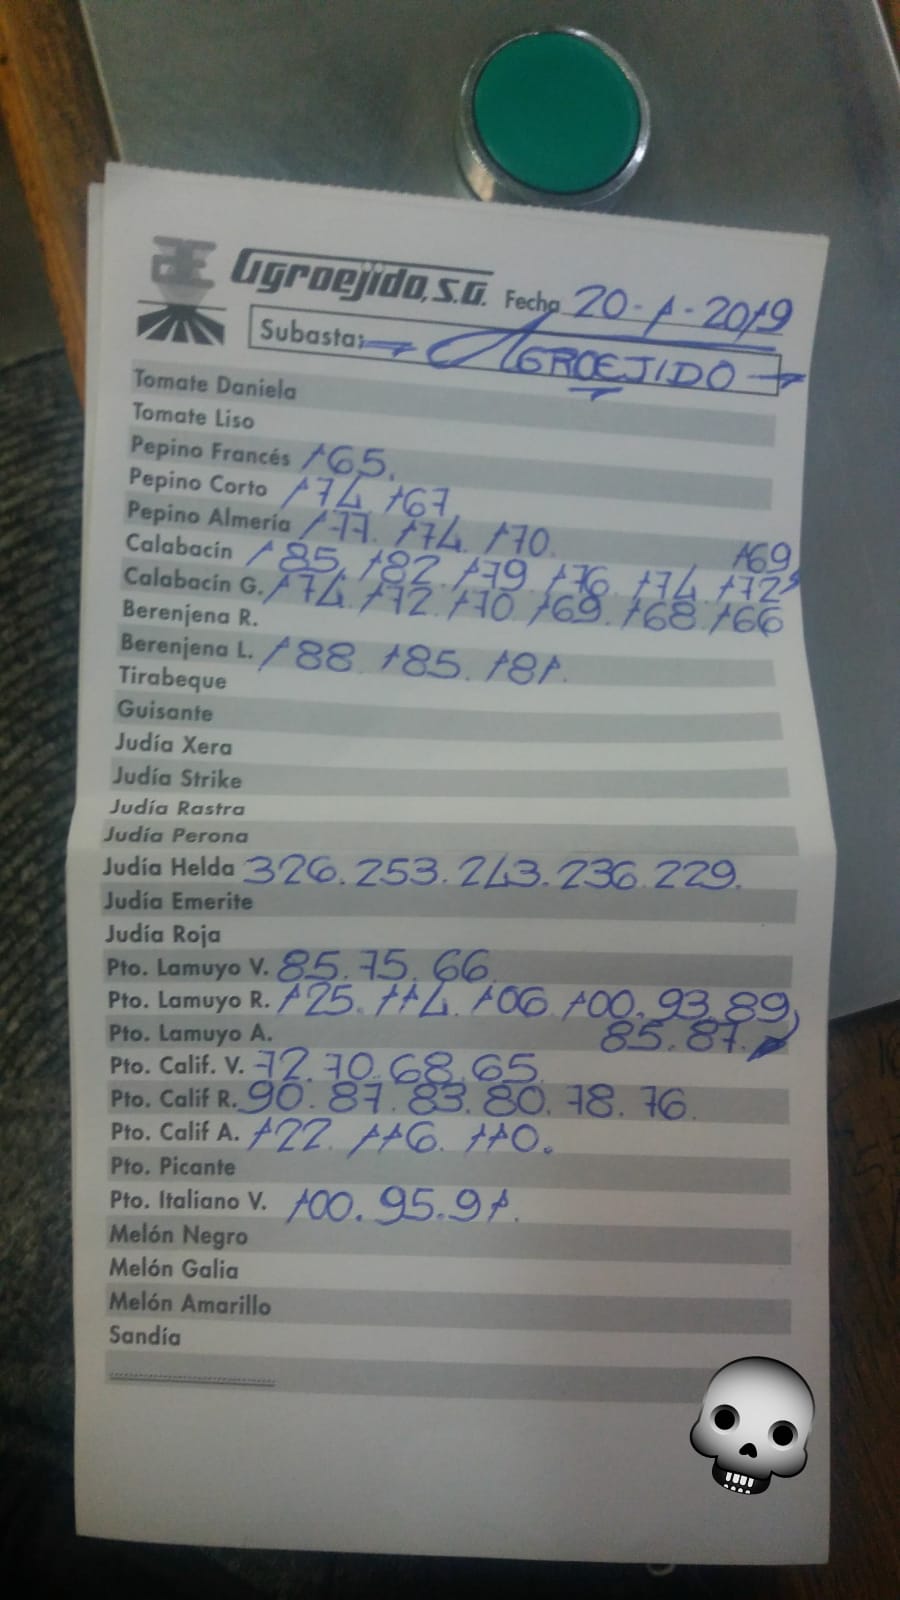 Agroejido, S.A. Fecha 20-1-2019
Subasta: AGROEJIDO
Tomate Daniela
Tomate Liso
Pepino Francés 165.
Pepino Corto 174. 167.
Pepino Almería 177. 174. 170.
169
Calabacín 185. 182. 179. 176. 174. 172
Calabacín G. 174. 172. 170. 169. 168. 166
Berenjena R.
Berenjena L. 188. 185. 181.
Tirabeque
Guisante
Judía Xera
Judía Strike
Judía Rastra
Judía Perona
Judía Helda 326. 253. 243. 236. 229.
Judía Emerite
Judía Roja
Pto. Lamuyo V. 85. 75. 66.
Pto. Lamuyo R. 125. 114. 106. 100. 93. 89
85. 87.
Pto. Lamuyo A.
Pto. Calif. V. 72. 70. 68. 65.
Pto. Calif R. 90. 87. 83. 80. 78. 76.
Pto. Calif A. 122. 116. 110.
Pto. Picante
Pto. Italiano V. 100. 95. 91.
Melón Negro
Melón Galia
Melón Amarillo
Sandía